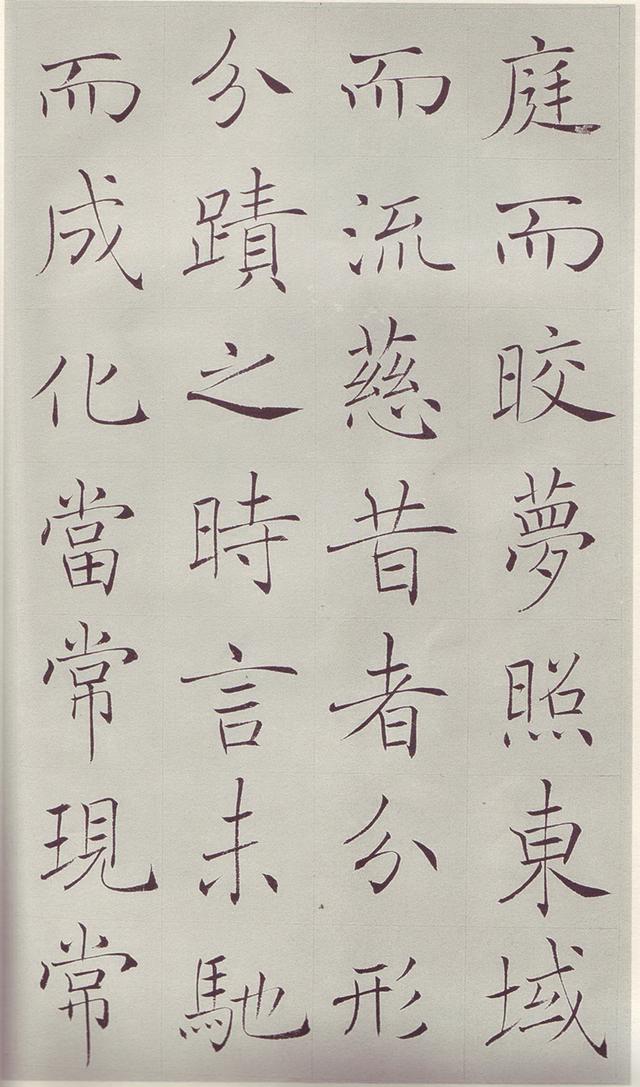 庭而皎夢照東域
而流慈昔者分形
分蹟之時言未馳
而成化當常現常